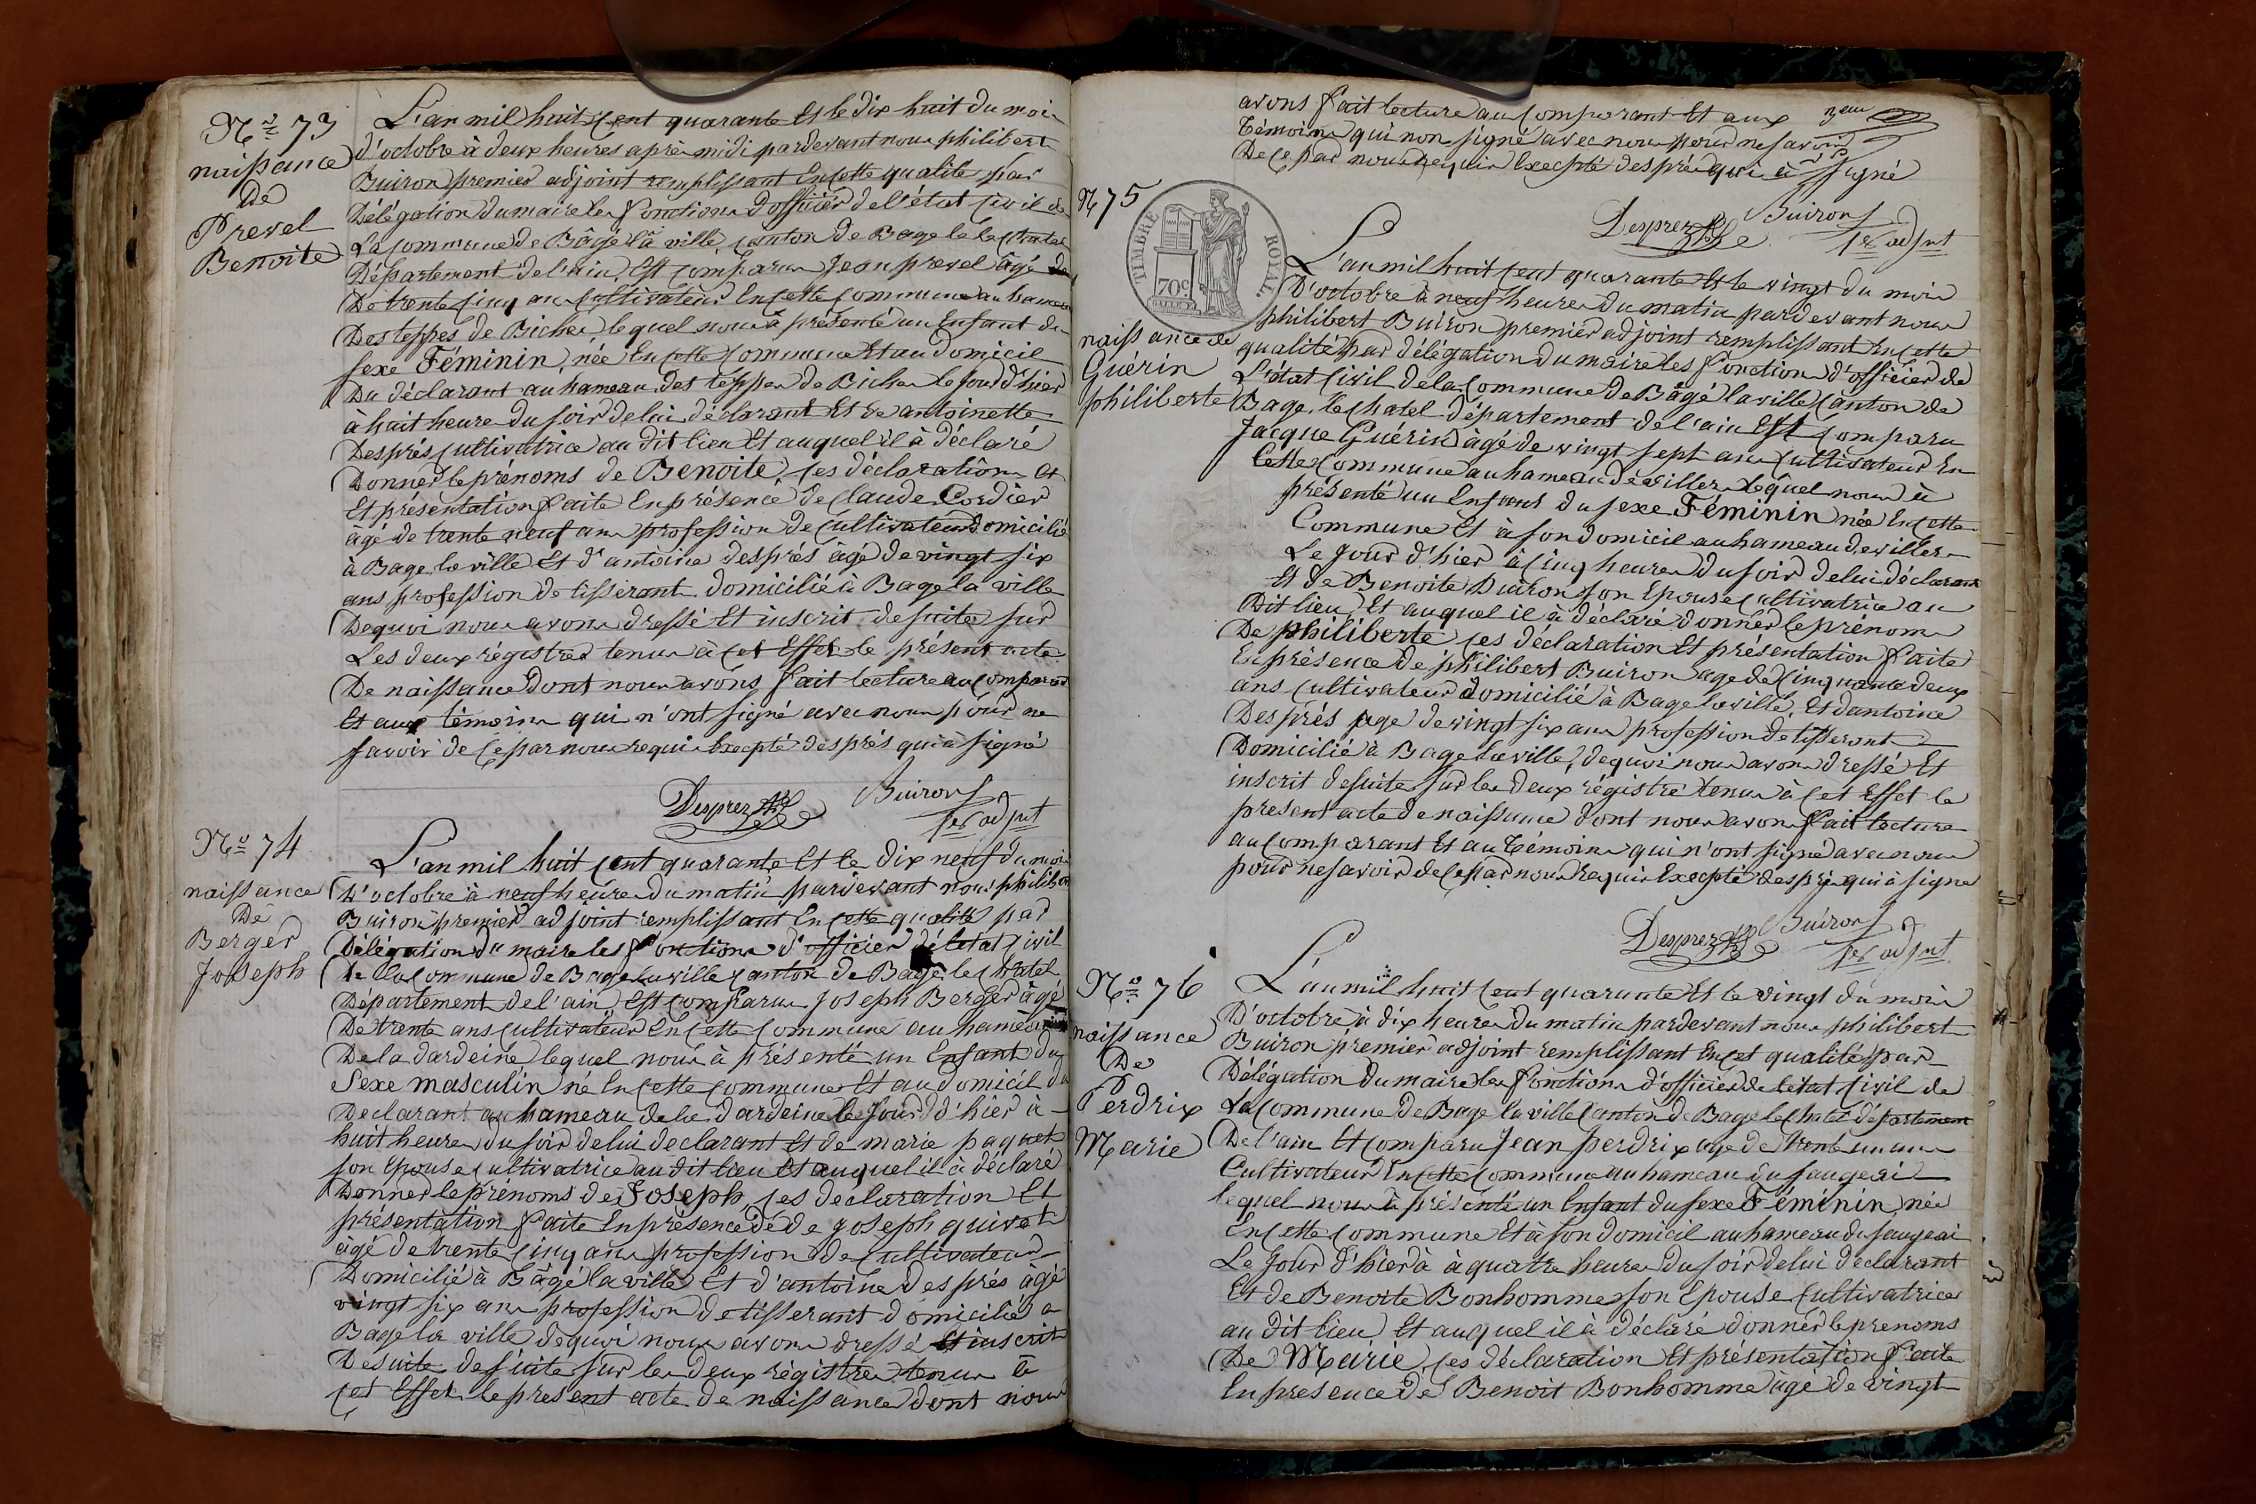 N° 73
naissance
De
Prevel
Benoite
L'an mil huit cent quarante Et le dix huit du moi
d'octobre à deux heures après midi pardevant nous philibert
Buiron premier adjoint remplissant En cette qualité par
Délégation du maire les fonctions d'officier de l'état Civil de
La Commune de Bâgé la ville canton de Bage le Chatel
Département de l'ain, Est comparu Jean prevel âgé de
De trente Cinq ans Cultivateur En cette Commune au hameau
Des teppes de Biches lequel nous à présenté un Enfant du
sexe Féminin, née En cette Commune Et au domicil
Du déclarant au hameau des teppes de Biches le jour d'hier
à huit heure du soir de lui déclarant Et de antoinette
Després Cultivatrice au dit lieu Et auquel il à déclaré
Donner le prénoms de Benoite, Ces déclaration Et
Et présentation faite En présence de Claude Cordier
âgé de trente neuf ans profession de Cultivateur domicilié
à Bage la ville Et d'antoine després âgé de vingt six
ans profession de tisserant domicilié à Bage la ville
De quoi nous avons dressé Et inscrit de suite sur
Les deux régistres tenus à Cet Effet le présent acte
De naissance Dont nous avons fait lecture au Comparant
Et aux témoins qui n'ont signé avec nous pour ne
savoir de Ce par nous requis Excepté després qui à signé
Desprez Buiron
1er adjnt
N° 74
naissance
De
Berger
Joseph
L'an mil huit Cent quarante Et le dix neuf du mois
D'octobre à neuf heures du matin pardevant nous philibert
Buiron premier adjoint remplissant En cette qualité par
Délégation du maire les fonctions d'officier de l'état Civil
De la Commune de Bage la ville Canton de Bage le Chatel
Département de l'ain Est comparu Joseph Berger âgé
De trente ans Cultivateur En cette Commune au hameau
De la dardeine lequel nous à présenté un Enfant du
Sexe masculin né En cette Commune Et au domicil du
Déclarant au hameau de la dardeine le jour d'hier à
huit heures du soir de lui déclarant Et de marie paquet
son Epouse Cultivatrice au dit lieu Et auquel il à déclaré
Donner le prénoms de Joseph, Ces déclaration Et
présentation faite En présence dé de Joseph quivet
âgé de trente Cinq ans profession de Cultivateur
Domicilié à Bâgé la ville Et d'antoine després âgé
vingt six ans profession de tisserant domicilié a
Bage la ville de quoi nous avons dressé Et inscrit
De suite de suite sur les deux régistres tenus à
Cet Effet le présent acte de naissance dont nous
avons fait lecture au Comparant Et aux
Témoins qui non signé avec nous pour ne savoir
De Ce par nous requis Excepté després qui à signé
Desprez Buiron
1er adjnt
N° 75
TIMBRE ROYAL
70c
naissance de
Guérin
philiberte
L'an mil huit Cent quarante Et le vingt du mois
D'octobre à neuf heures du matin pardevant nous
philibert Buiron premier adjoint remplissant En cette
qualité par délégation du maire les fonctions d'officier de
L'état Civil de la Commune de Bâgé la ville Canton de
Bage le chatel département de l'ain Est Comparu
Jacque Guérin âgé de vingt sept ans Cultivateur En
Cette Commune au hameau de villers lequel nous à
présenté un Enfant du sexe Féminin née En cette
Commune Et à son domicil au hameau de villers
Le jour d'hier à Cinq heures du soir de lui déclarant
Et de Benoite Buiron son Epouse Cultivatrice au
Dit lieu, Et auquel il à déclaré donner le prénoms
De philiberte Ces déclaration Et présentation faite
En présence de philibert Buiron age de Cinquante deux
ans Cultivateur domicilié à Bage la ville, Et d'antoine
Després age de vingt six ans profession de tisserant
Domicilié à Bage la ville, de quoi nous avons dressé Et
inscrit de suite sur les deux régistre tenus à Cet Effet le
present acte de naissance dont nous avons fait lecture
au Comparant Et au Témoins qui n'ont signé avec nous
pour ne savoir de Ce par nous Requis Excepté després qui à signé
Desprez Buiron
1er adjnt
N° 76
naissance
De
Perdrix
Marie
L'an mil huit Cent quarante Et le vingt du mois
D'octobre à dix heures du matin pardevant nous philibert
Buiron premier adjoint remplissant En cet qualité par
Délégation du maire les fonctions d'officier de l'état Civil de
La Commune de Bage la ville Canton de Bage le Chatel département
De l'ain Et comparu Jean perdrix age de trente un ans
Cultivateur En cette Commune au hameau du saugeai
lequel nous à présenté un Enfant du sexe Féminin, née
En cette Commune Et à son domicil au hameau du saugeai
Le jour d'hier à à quatre heures du soir de lui déclarant
Et de Benoite Bonhomme son Epouse Cultivatrice
au dit lieu Et auquel il à déclaré donner le prenoms
De Marie, Ces déclaration Et présentation faite
En présence de Benoit Bonhomme âgé de vingt